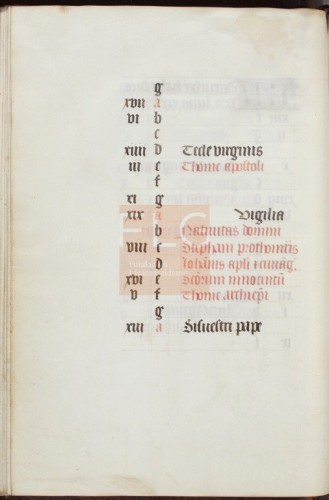 g
xvii a
vi b
c
xiiii d Tecle virginis
iii e Thome apostoli
f
xi g
xix a Vigilia
b Natiuitas domini
viii c Stephani prothom̄ris
d Ioh̄nis apl̄i 
xvi e Sc̄orum innocentū
v f Thome archiep̄i
g
xiii a Siluestri pape
FLG